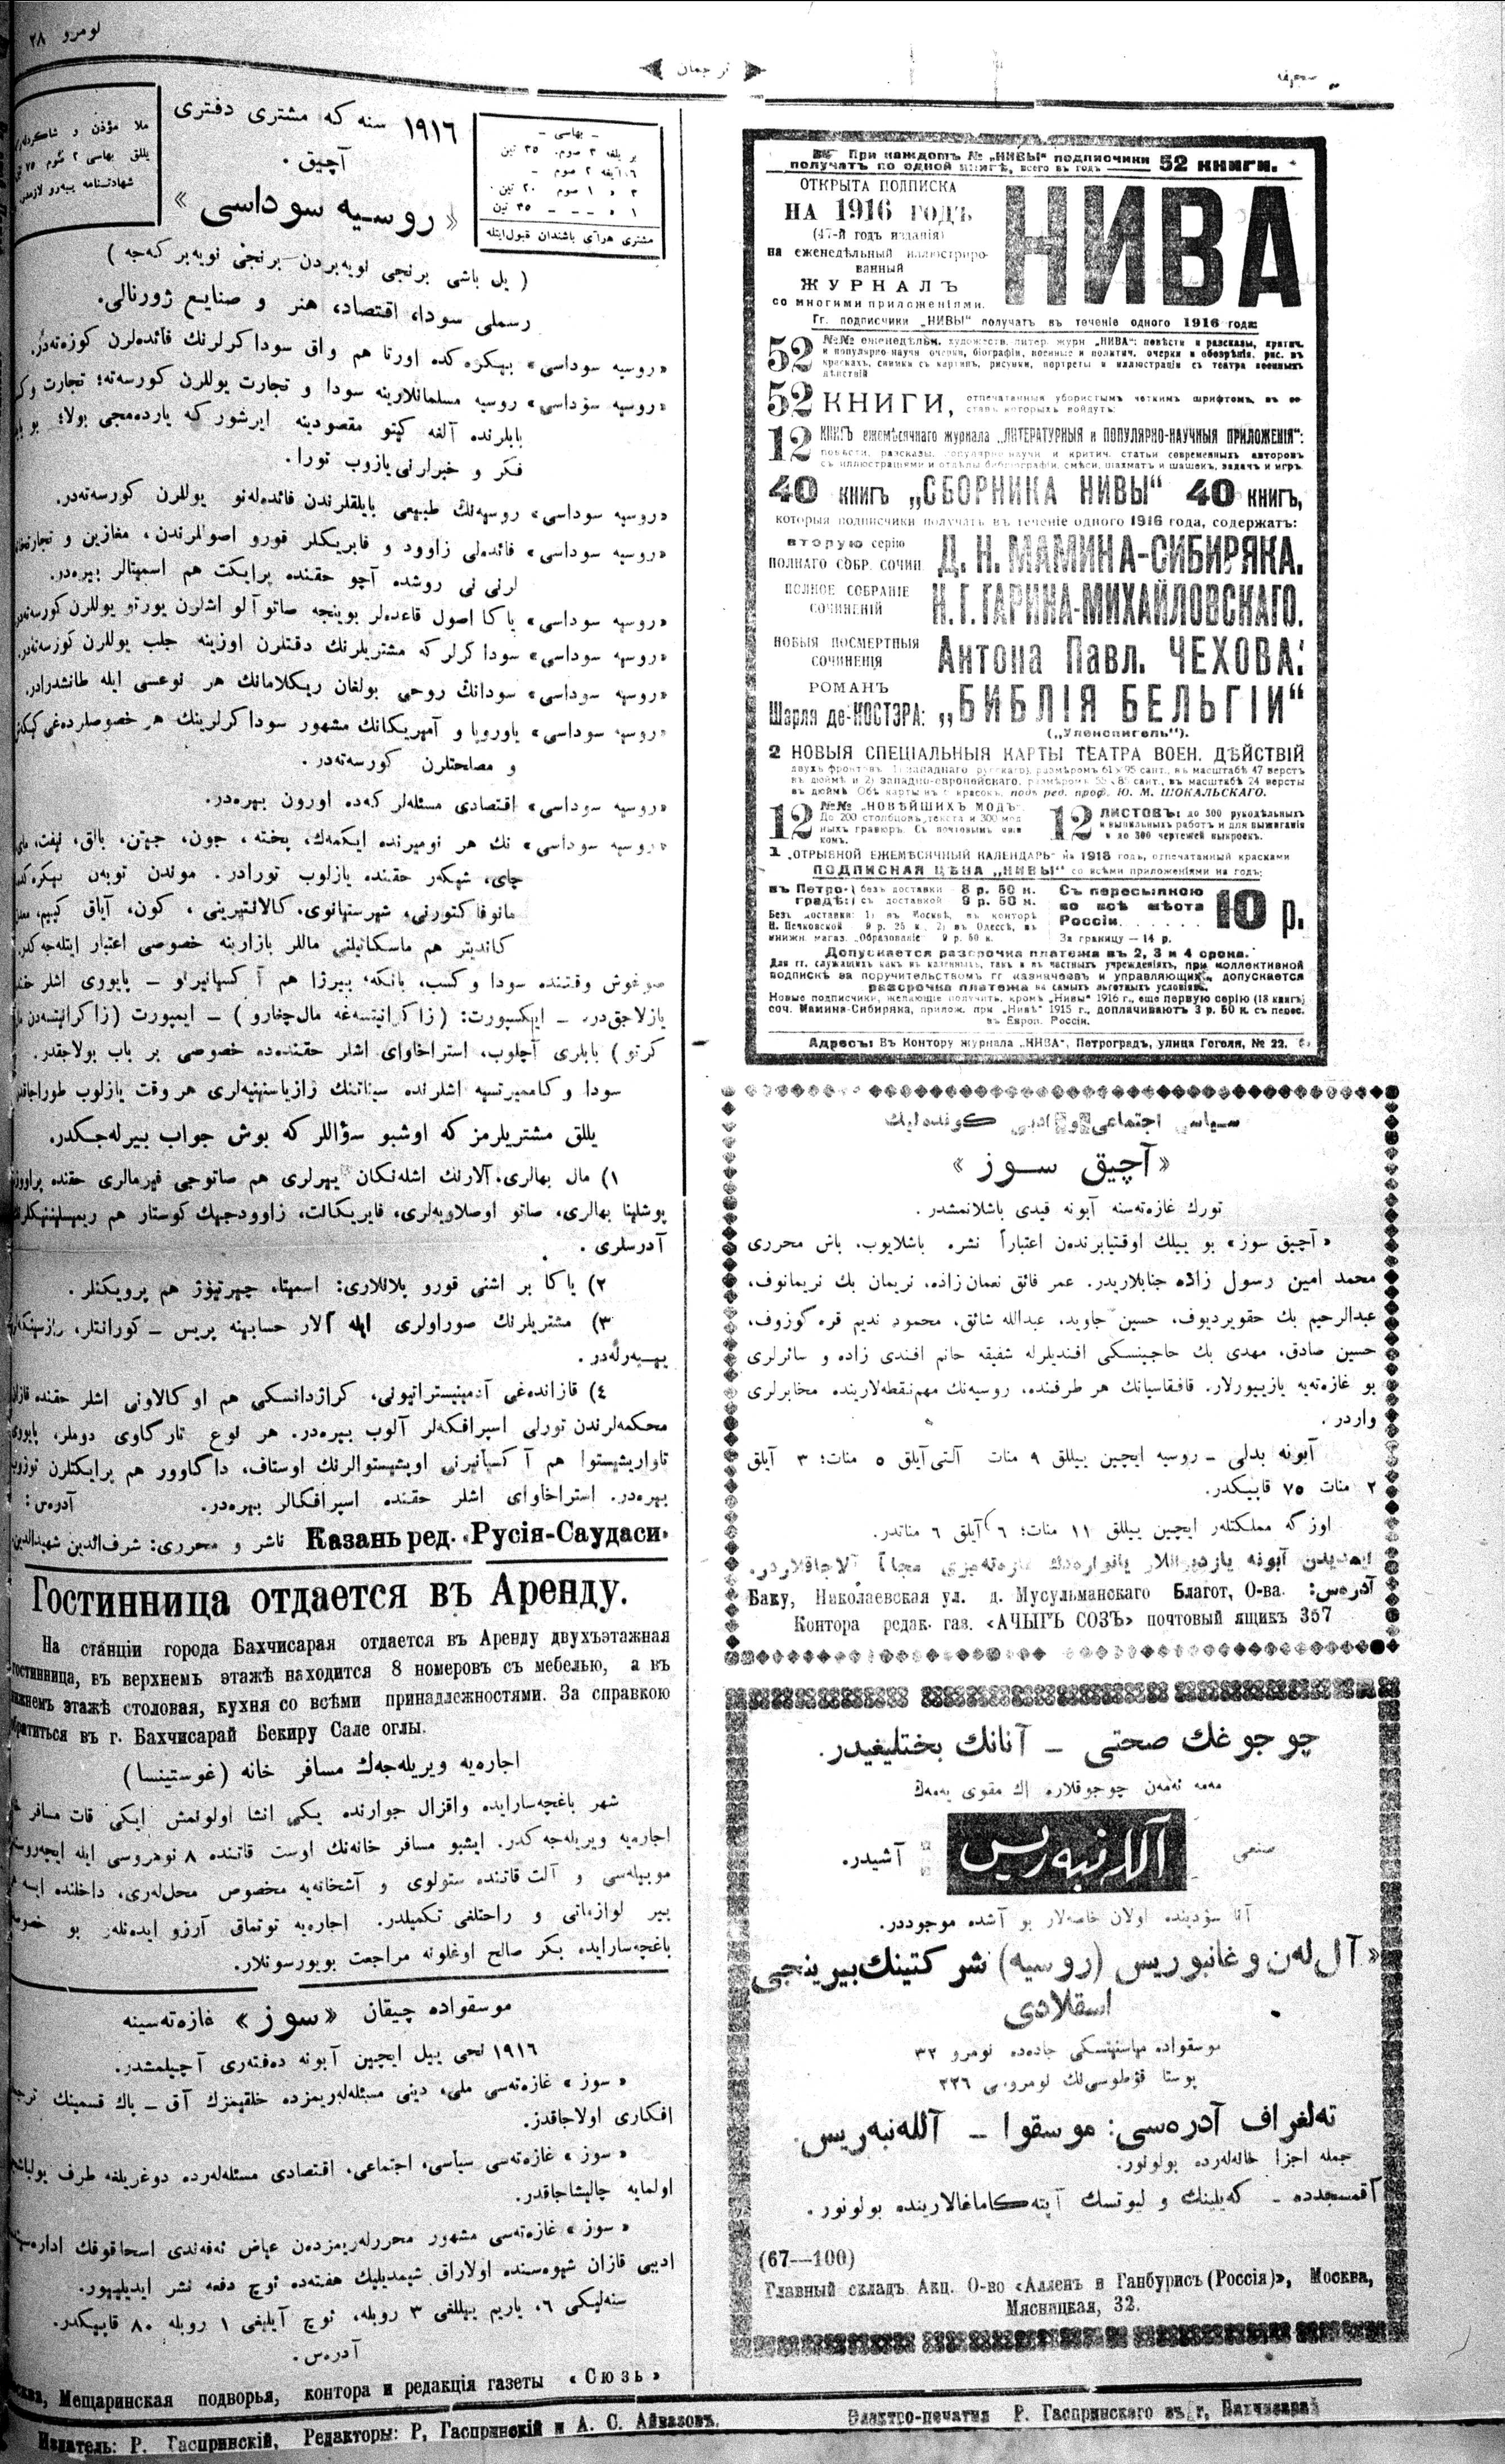 نومرو ٢٨
ترجمان
صحيفه
١٩١٦ سنه كه مشترى دفترى
آچيق .
« روسيه سوداسى »
– بهاسى –
بر يللغه ٣ صوم، ٣٥ تين
٦ آيغه ٢ صوم –
٣ ١ صوم ٢٠ تين .
١ – – ٣٥ تين
مشترى هر آى باشندان قبول ايتله
ملا مؤذن و شاكردلر
يللق بهاسى ٢ صوم ٧٥
شهادتنامه يبه‌رو لازمدر
( يل باشى برنجى نويه‌بردن – برنجى نويه‌بر كه‌جه )
رسملى سودا، اقتصاد، هنر و صنايع ژورنالى.
«روسيه سوداسى» بيكره‌كده اورتا هم واق سوداكرلرنك فائده‌لرن كوزه‌ته‌در.
«روسيه سوداسى» روسيه مسلمانلارينه سودا و تجارت يوللرن كورسه‌ته؛ تجارت
بابلرنده آلغه كيتو مقصودينه ايرشور كه ياردمجى بولا؛
فكر و خبرلرنى يازوب تورا.
«روسيه سوداسى» روسيه‌نك طبيعى بايلقلرندن فائده‌له‌نو يوللرن كورسه‌ته‌در.
«روسيه سوداسى» فائده‌لى زاوود و فابريكلر قورو اصوللرندن، مغازين و
لرنى نى روشده آچو حقنده پرايكت هم اسميتالر بيره‌در.
«روسيه سوداسى» ياكا اصول قاعده‌لر بوينچه صاتو آلو اشلرن يورتو يوللرن كورسه‌ته‌در
«روسيه سوداسى» سوداكرلر كه مشتريلرنك دقتلرن اوزينه جلب يوللرن كورسه‌ته‌در.
«روسيه سوداسى» سودانك روحى بولغان ريكلامانك هر نوعسى ايله طانشدرادر.
«روسيه سوداسى» ياوروپا و آمريكانك مشهور سوداكرلرينك هر خصوصلرده‌غى
و مصلحتلرن كورسه‌ته‌در .
«روسيه سوداسى» اقتصادى مسئله‌لر كه‌ده اورون بيره‌در.
«روسيه سوداسى» نك هر نوميرنده ايكمه‌ك، پخته، جون، جيتن، بالق، نيفت،
چاى، شيكه‌ر حقنده يازلوب تورادر. موندن توبه‌ن
مانوفاكتورنى، شهرستيانوى، كالانتيرينى، كون، آياق كييم،
كانديتر هم ماسكاتيلنى ماللر بازارينه خصوصى اعتبار ايتله‌جه‌كدر.
صوغوش وقتنده سودا و كسب، بانكه، بيرزا هم آكسيانيرنو – پايووى اشلر
يازلاجق‌در. – ايكسپورت: (زاكرانيتسه‌غه مال‌چغارو) – ايمپورت (زاكرانيتسه‌دن
كرتو) بابلرى آچلوب، استراخاواى اشلر حقنده‌ده خصوصى بر باب بولاجقدر.
سودا و كاميرتسيه اشلرنده سيناتنك زازياسنينيه‌لرى هر وقت يازلوب
يللق مشتريلرمز كه اوشبو سؤاللر كه بوش جواب بيرله‌جكدر.
١) مال بهالرى. آلارنك اشله‌نكان ييرلرى هم صاتوجى فيرمالرى حقنده
پوشلينا بهالرى، صاتو اوصلاويه‌لرى، فابريكانت، زاوودجيك كوستار هم
آدرسلرى .
٢) ياكا بر اشنى قورو پلانلارى: اسميتا، چيرتيوژ هم پرويكتلر .
٣) مشتريلرنك صوراولرى ايله آلار حسابينه پريس – كورانتلر،
يبه‌رله‌در .
٤) قازانده‌غى آدمينيستراتيونى، كراژدانسكى هم اوكالاونى اشلر حقنده
محكمه‌لرندن تورلى اسپرافكه‌لر آلوب بيره‌در. هر نوع تارگاوى دوملر،
تاواريشيستوا هم آكسيانيرنى اوبشيستوالرنك اوستاف، داگاوور هم پرايكتلرن
بيره‌در. استراخاواى اشلر حقنده اسپرافكالر بيره‌در. آدره‌س:
Казань ред. «Русія-Саудаси» ناشر و محررى: شرف‌الدين شهيدالدين
Гостинница отдается въ Аренду.
На станціи города Бахчисарая отдается въ Аренду двухъэтажная
гостинница, въ верхнемъ этажѣ находится 8 номеровъ съ мебелью, а въ
нижнемъ этажѣ столовая, кухня со всѣми принадлежностями. За справкою
обратиться въ г. Бахчисарай Бекиру Сале оглы.
اجاره‌يه ويريله‌جه‌ك مسافر خانه (غوستينسا)
شهر باغچه‌سارايده واقزال جوارنده يكى انشا اولونمش ايكى قات مسافر
اجاره‌يه ويريله‌جه‌كدر. ايشبو مسافر خانه‌نك اوست قاتنده ٨ نومروسى ايله
موبيله‌سى و آلت قاتنده ستولوى و آشخانه‌يه مخصوص محل‌لرى، داخلنده
بير لوازماتى و راحتلغى تكميلدر. اجاره‌يه توتماق آرزو ايده‌نلر بو
باغچه‌سارايده بكر صالح اوغلونه مراجعت بويورسونلار.
موسقواده چيقان «سوز» غازه‌ته‌سينه
١٩١٦ نجى ييل ايچين آبونه ده‌فته‌رى آچيلمشدر.
«سوز» غازه‌ته‌سى ملى، دينى مسئله‌لريمزده خلقيمزك آق – پاك قسمينك
افكارى اولاجاقدر.
«سوز» غازه‌ته‌سى سياسى، اجتماعى، اقتصادى مسئله‌لرده دوغريلغه طرف
اولمايه چاليشاجاقدر.
«سوز» غازه‌ته‌سى مشهور محررله‌ريمزدن عياض ئه‌فه‌ندى اسحاقوفك
ادبى قازان شيوه‌سنده اولاراق شيمديليك هفته‌ده ئوچ دفعه نشر ايديلييور.
سنه‌ليكى ٦، ياريم ييللغى ٣ روبله، ئوچ آيلغى ١ روبله ٨٠ قاپيكدر.
آدره‌س.
Мещаринская подворья, контора и редакція газеты «Сюзь»
Издатель: Р. Гаспринскій, Редакторы: Р, Гаспринскій и А. С. Айвазовъ.
При каждомъ № „НИВЫ" подписчики получатъ по одной книгѣ, всего въ годъ 52 КНИГИ.
ОТКРЫТА ПОДПИСКА
НА 1916 ГОДЪ
(47-й годъ изданія)
на еженедѣльный иллюстриро-
ванный
ЖУРНАЛЪ
со многими приложеніями.
НИВА
Гг. подписчики „НИВЫ" получатъ въ теченіе одного 1916 года:
52 №№ еженедѣльн. художеств. литер. журн „НИВА": повѣсти и разсказы, критич.
и популярно научн очерки, біографіи, военные и политич. очерки и обозрѣнія, рис. въ
краскахъ, снимки съ картинъ, рисунки, портреты и иллюстраціи съ театра военныхъ
дѣйствій
52 КНИГИ, отпечатанныя убористымъ четкимъ шрифтомъ, въ со-
ставъ которыхъ войдутъ:
12 КНИГЪ ежемѣсячнаго журнала „ЛИТЕРАТУРНЫЯ и ПОПУЛЯРНО-НАУЧНЫЯ ПРИЛОЖЕНІЯ":
повѣсти, разсказы, популярно-научн и критич. статьи современныхъ авторовъ
съ иллюстраціями и отдѣлы библіографіи, смѣси, шахматъ и шашекъ, задачъ и игръ.
40 КНИГЪ „СБОРНИКА НИВЫ" 40 КНИГЪ,
которыя подписчики получатъ въ теченіе одного 1916 года, содержатъ:
вторую серію
ПОЛНАГО СОБР. СОЧИН Д. Н. МАМИНА-СИБИРЯКА.
ПОЛНОЕ СОБРАНІЕ
СОЧИНЕНІЙ Н. Г. ГАРИНА-МИХАЙЛОВСКАГО.
НОВЫЯ ПОСМЕРТНЫЯ
СОЧИНЕНІЯ Антона Павл. ЧЕХОВА:
РОМАНЪ
Шарля де-КОСТЭРА: „БИБЛІЯ БЕЛЬГІИ"
(„Уленспигель").
2 НОВЫЯ СПЕЦІАЛЬНЫЯ КАРТЫ ТЕАТРА ВОЕН. ДѢЙСТВІЙ
двухъ фронтовъ 1) западнаго русскаго), размѣромъ 61×95 сант., въ масштабѣ 47 верстъ
въ дюймѣ и 2) западно-европейскаго, размѣромъ сант., въ масштабѣ 24 версты
въ дюймѣ Обѣ карты въ красокъ, подъ ред. проф. Ю. М. ШОКАЛЬСКАГО.
12 №№ „НОВѢЙШИХЪ МОДЪ".
До 200 столбцовъ текста и 300 мод
ныхъ гравюръ. Съ почтовымъ ящи
комъ.
12 ЛИСТОВЪ: до 300 рукодѣльныхъ
и выпильныхъ работъ и для выжиганія
и до 300 чертежей выкроекъ.
1 „ОТРЫВНОЙ ЕЖЕМѢСЯЧНЫЙ КАЛЕНДАРЬ" на 1916 годъ, отпечатанный красками
ПОДПИСНАЯ ЦѢНА „НИВЫ" со всѣми приложеніями на годъ:
въ Петро- безъ доставки 6 р. 50 к.
градѣ: съ доставкой 9 р. 50 к.
Безъ доставки: 1) въ Москвѣ, въ конторѣ
Н. Печковской 9 р. 25 к., 2) въ Одессѣ, въ
книжн. магаз. „Образованіе" 9 р. 50 к.
Съ пересылкою
во всѣ мѣста
Россіи 10 р.
За границу — 14 р.
Допускается разсрочка платежа въ 2, 3 и 4 срока.
Для гг. служащихъ какъ въ казенныхъ, такъ и въ частныхъ учрежденіяхъ, при коллективной
подпискѣ за поручительствомъ гг казначеевъ и управляющихъ, допускается
разсрочка платежа на самыхъ льготныхъ условіяхъ.
Новые подписчики, желающіе получить, кромѣ „Нивы" 1916 г., еще первую серію (18 книгъ)
соч. Мамина-Сибиряка, прилож. при „Нивѣ" 1915 г., доплачиваютъ 3 р. 50 к. съ перес.
въ Европ. Россіи.
Адресъ: Въ Контору журнала „НИВА", Петроградъ, улица Гоголя, № 22.
سياسى اجتماعى و ادبى كونده‌ليك
« آچيق سوز »
تورك غازه‌ته‌سنه آبونه قيدى باشلانمشدر .
«آچيق سوز» بو ييلك اوقتيابرنده‌ن اعتباراً نشره باشلايوب، باش محررى
محمد امين رسول زاده جنابلاريدر. عمر فائق نعمان‌زاده، نريمان بك نريمانوف،
عبدالرحيم بك حقويرديوف، حسين جاويد، عبدالله شائق، محمود نديم قره كوزوف،
حسين صادق، مهدى بك حاجينسكى افنديلرله شفيقه خانم افندى زاده و سائرلرى
بو غازه‌ته‌يه يازييورلار. قافقاسيانك هر طرفنده، روسيه‌نك مهم نقطه‌لارينده مخابرلرى
واردر .
آبونه بدلى – روسيه ايچين ييللق ٩ منات آلتى آيلق ٥ منات؛ ٣ آيلق
٢ منات ٧٥ قاپيكدر.
اوزگه مملكتلر ايچين ييللق ١١ منات؛ ٦ آيلق ٦ مناتدر.
آدره‌س: Баку, Николаевская ул. д. Мусульманскаго Благот, О-ва.
Контора редак. газ. «АЧЫГЪ СОЗЪ» почтовый ящикъ 357
چوجوغك صحتى – آنانك بختليغيدر.
مه‌مه ئه‌مه‌ن چوجوقلاره اك مقوى يه‌مه‌ك
صنعى آللەنبه‌ريس آشيدر.
آنا سؤدينده اولان خاصه‌لار بو آشده موجوددر.
«آل‌له‌ن و غانبوريس (روسيه) شركتينك بيرينجى
اسقلادى
موسقواده مياسنيتسكى جاده‌ده نومرو ٣٢
پوستا قوطوسى‌نك نومروسى ٢٢٦
ته‌لغراف آدره‌سى: موسقوا – آلله‌نبه‌ريس.
جمله اجزا خانه‌له‌رده بولونور.
آقمسجدده – كه‌يلينك و ليوتسك آپته‌كاماغالارينده بولونور .
(67—100)
Главный складъ Акц. О-во «Алленъ и Ганбурисъ (Россія)», Москва,
Мясницкая, 32.
Электро-печатня Р. Гаспринскаго въ г. Бахчисараѣ